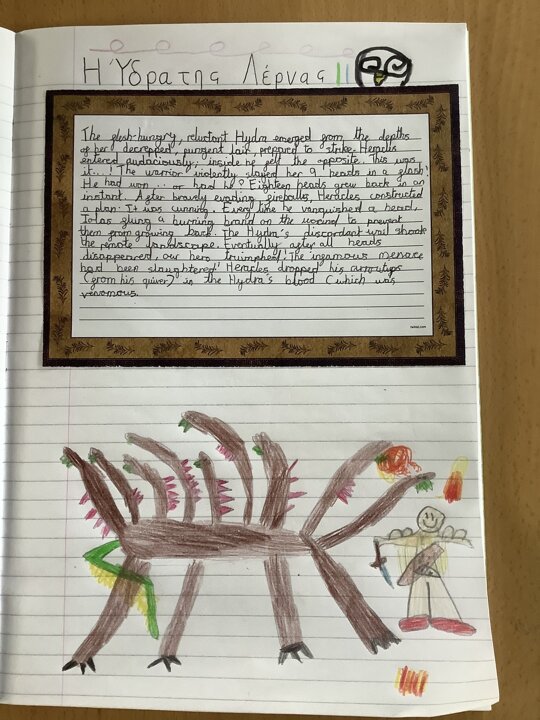 Η Ύδρα της Λέρνας
The flesh-hungry, reluctant Hydra emerged from the depths
of her decreped, pungent lair, prepare to strike. Heracles
entered audaciously; inside he felt the opposite. This was
it...! The warrior violently slayed her 9 heads in a flash!
He had won ... or had he? Eighteen heads grew back in an
instant. After bravly evading fireballs, Heracles constructed
a plan. It was cunning. Every time he vanquished a head,
Iolas flung a burning brand on the wound to prevent
them from growing back. The Hydra's discordant wail shook
the remote landscape. Eventually after all heads
disappeared, our hero triumphed! The infamous menace
had been slaughtered! Heracles dropped his arrowtips
(from his quiver) in the Hydra's blood (which was
venomous.
twinkl.com